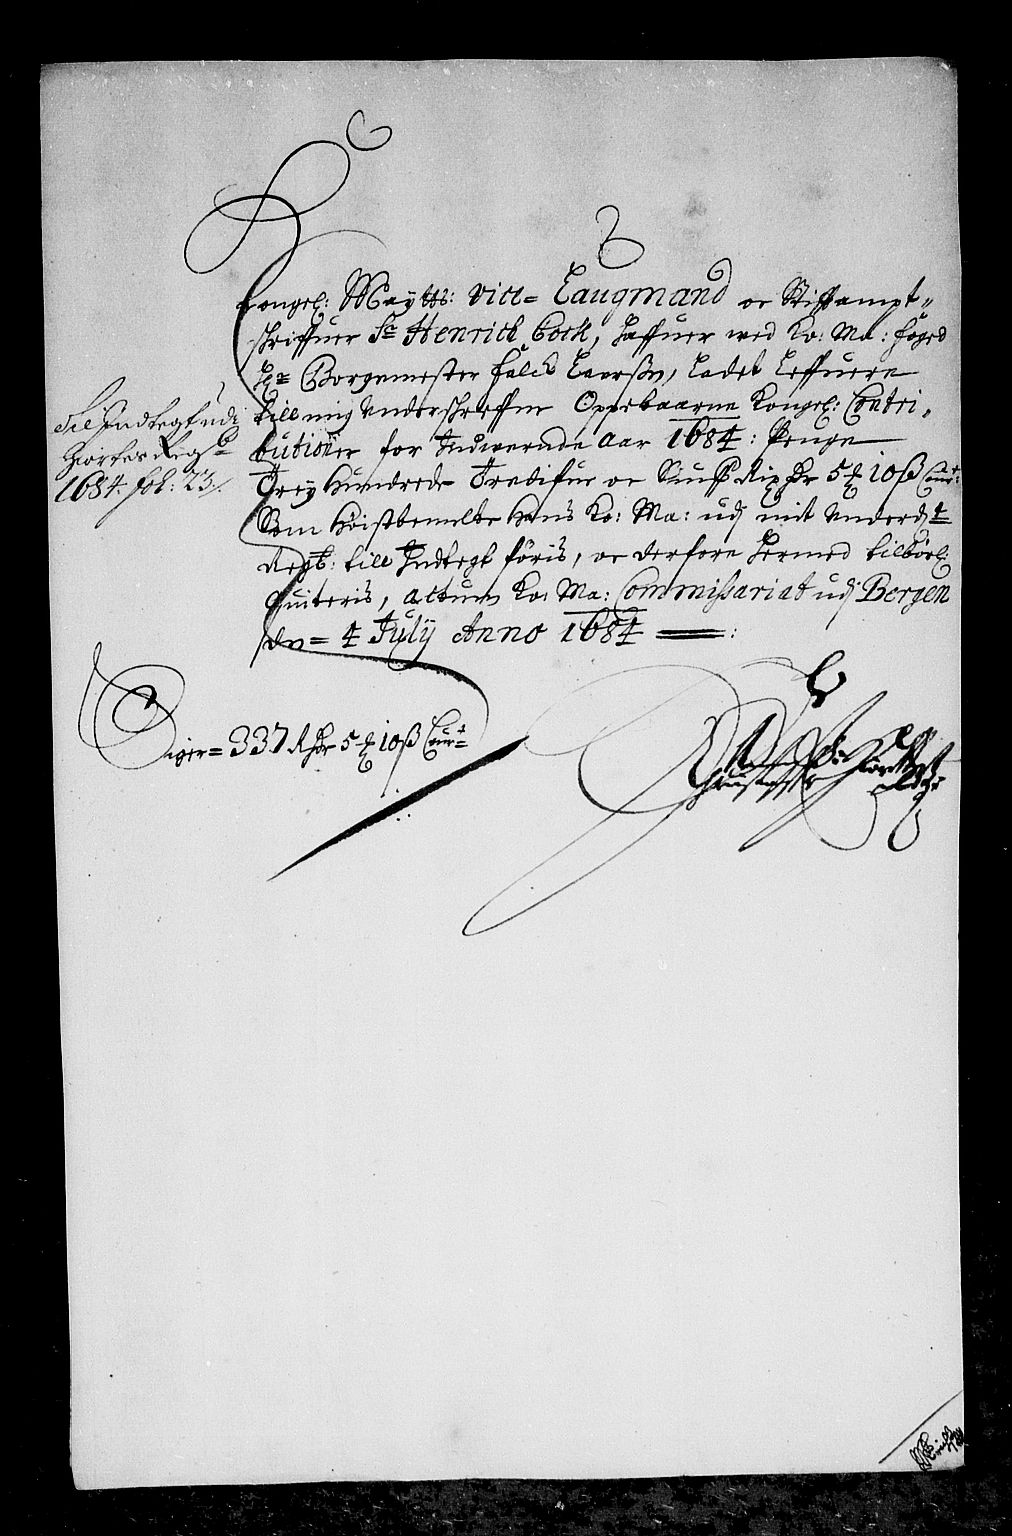 3
Kongel: Maÿtts: vice= Laugmand oc Stiftampt=
schriffuer Sr Henrich Cock, haffuer wed Ko: Ma: foged
Hr Borgemester Falck Laursøn, Ladet Leffuere
till mig Underschreffne Oppebaarne Kongel: Contri=
butioner for Indwerende Aar 1684: Penge
Trey Hundrede Tredifue oc Siuff Rixdr 5 ₰ 10 ß Cour:
Som Høistbemelte Hans Ko: Ma: udj mit Underd:
Regt: till Indtegt føris, oc derfore hermed tilbörl:
quiteris, Actum Ko: Ma: Commissariat udj Bergen
den= 4 Julÿ Anno 1684 =:
Til Indtegt udj
Hiortes Regsb
1684. fol: 23/.
Siger= 337 Rdr 5 ₰ 10 ß Cour=